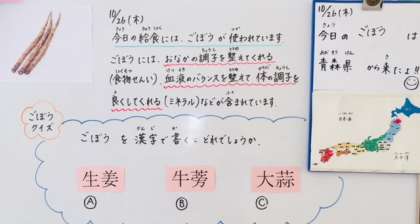 10/26(木)
今日の給食には、ごぼうが使われています
ごぼうには、おなかの調子を整えてくれる
(食物せんい) 血液のバランスを整えて 体の調子を
良くしてくれる(ミネラル)などが含まれています
ごぼう
クイズ
ごぼう を 漢字で 書くと どれでしょうか.
生姜
牛蒡
大蒜
A
B
C
10/26(木)
今日の ごぼう は
青森県 から来たよ!!